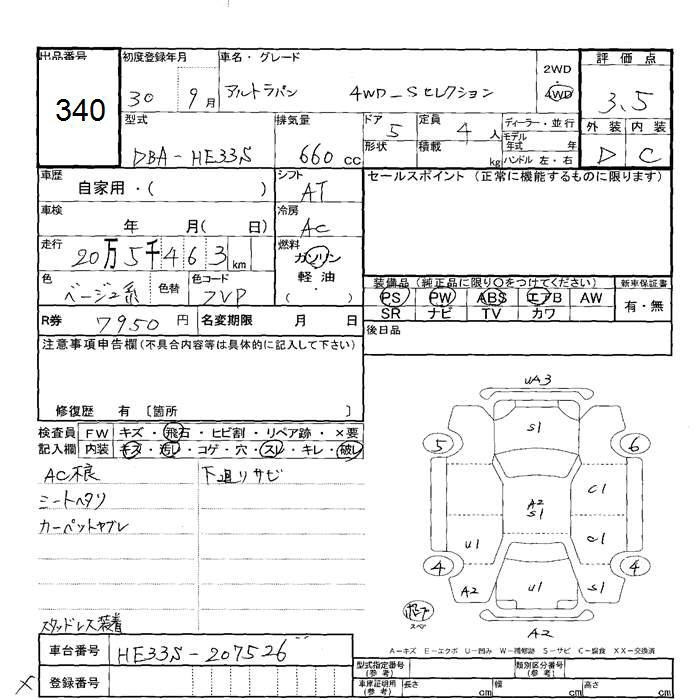 出品番号 340
初度登録年月 30 9月
車名・グレード アルトラパン 4WD-Sセレクション
2WD
4WD
評価点 3.5
外装 D 内装 C
型式 DBA-HE33S
排気量 660 cc
ドア 5
形状
定員 4 人
積載 kg
ディーラー・並行
モデル年式 年
ハンドル 左・右
車歴 自家用・( )
シフト AT
車検 年 月( 日)
冷房 AC
走行 20万5千463 km
燃料 ガソリン
軽油
・( )・
色 ベージュ系 色替
色コード ZVP
R券 7950 円
名変期限 月 日
セールスポイント (正常に機能するものに限ります)
装備品 (純正品に限り〇をつけてください)
PS PW ABS エアB AW
SR ナビ TV カワ
新車保証書
有・無
後日品
注意事項申告欄 (不具合内容等は具体的に記入して下さい)
修復歴 有 〔箇所 〕
検査員記入欄
FW キズ・飛石・ヒビ割・リペア跡・×要
内装 キズ・汚レ・コゲ・穴・スレ・キレ・破レ
AC不良
下廻りサビ
シートヘタリ
カーペットヤブレ
スタッドレス装着
UA3
S1
5
6
A2
S1
C1
U1
C1
4
4
A2
U1
S1
スペア
A2
A-キズ E-エクボ U-凹み W-補修跡 S-サビ C-腐食 XX-交換済
車台番号 HE33S-207526
登録番号
型式指定番号(参考)
類別区分番号(参考)
車庫証明用(参考) 長さ cm 幅 cm 高さ cm